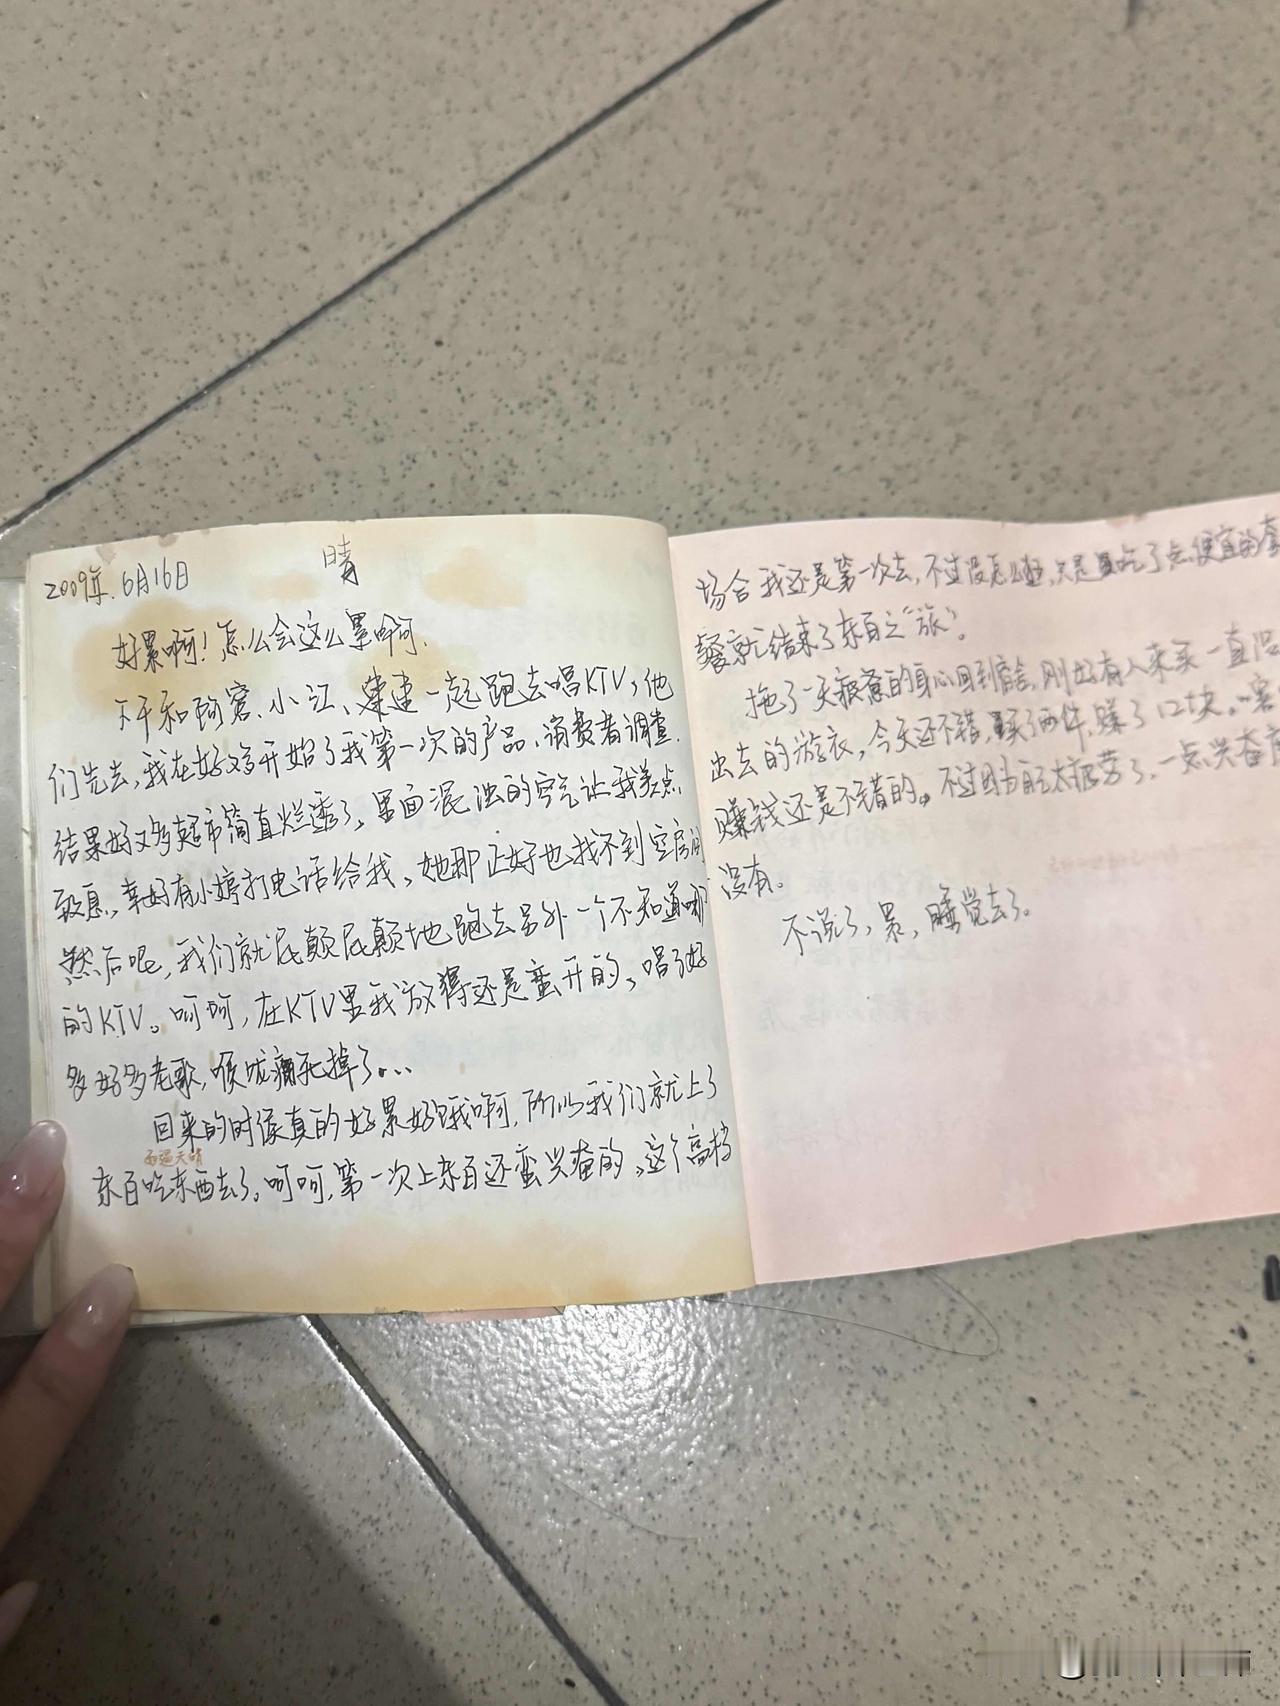 2009年.6月16日 晴
好累啊！怎么会这么累啊.
下午和阿容、小江、建建一起跑去唱KTV,他
们先去,我在好又多开始了我第一次的产品、消费者调查.
结果好又多超市简直烂透了,里面混浊的空气让我差点
幸好有小婷打电话给我,她那正好也找不到空房间
然后呢,我们就屁颠屁颠地跑去另外一个不知道哪
的KTV。呵呵,在KTV里我放得还是蛮开的,唱了好
多好多老歌,喉咙痛死掉了...
回来的时候真的好累好饿啊,所以我们就上了
雨过天晴
东百吃东西去了。呵呵,第一次上东百还蛮兴奋的,这个高档
场合我还是第一次去,不过没怎么逛,只是吃了点便宜的套
餐就结束了东百之"旅".
拖了一天疲惫的身心回到宿舍,刚好有人来买一直没
出去的游衣,今天还不错,买了两件,赚了12块。
赚钱还是不错的。不过因为自己太疲劳了,一点兴奋
没有.
不说了,累,睡觉去了。